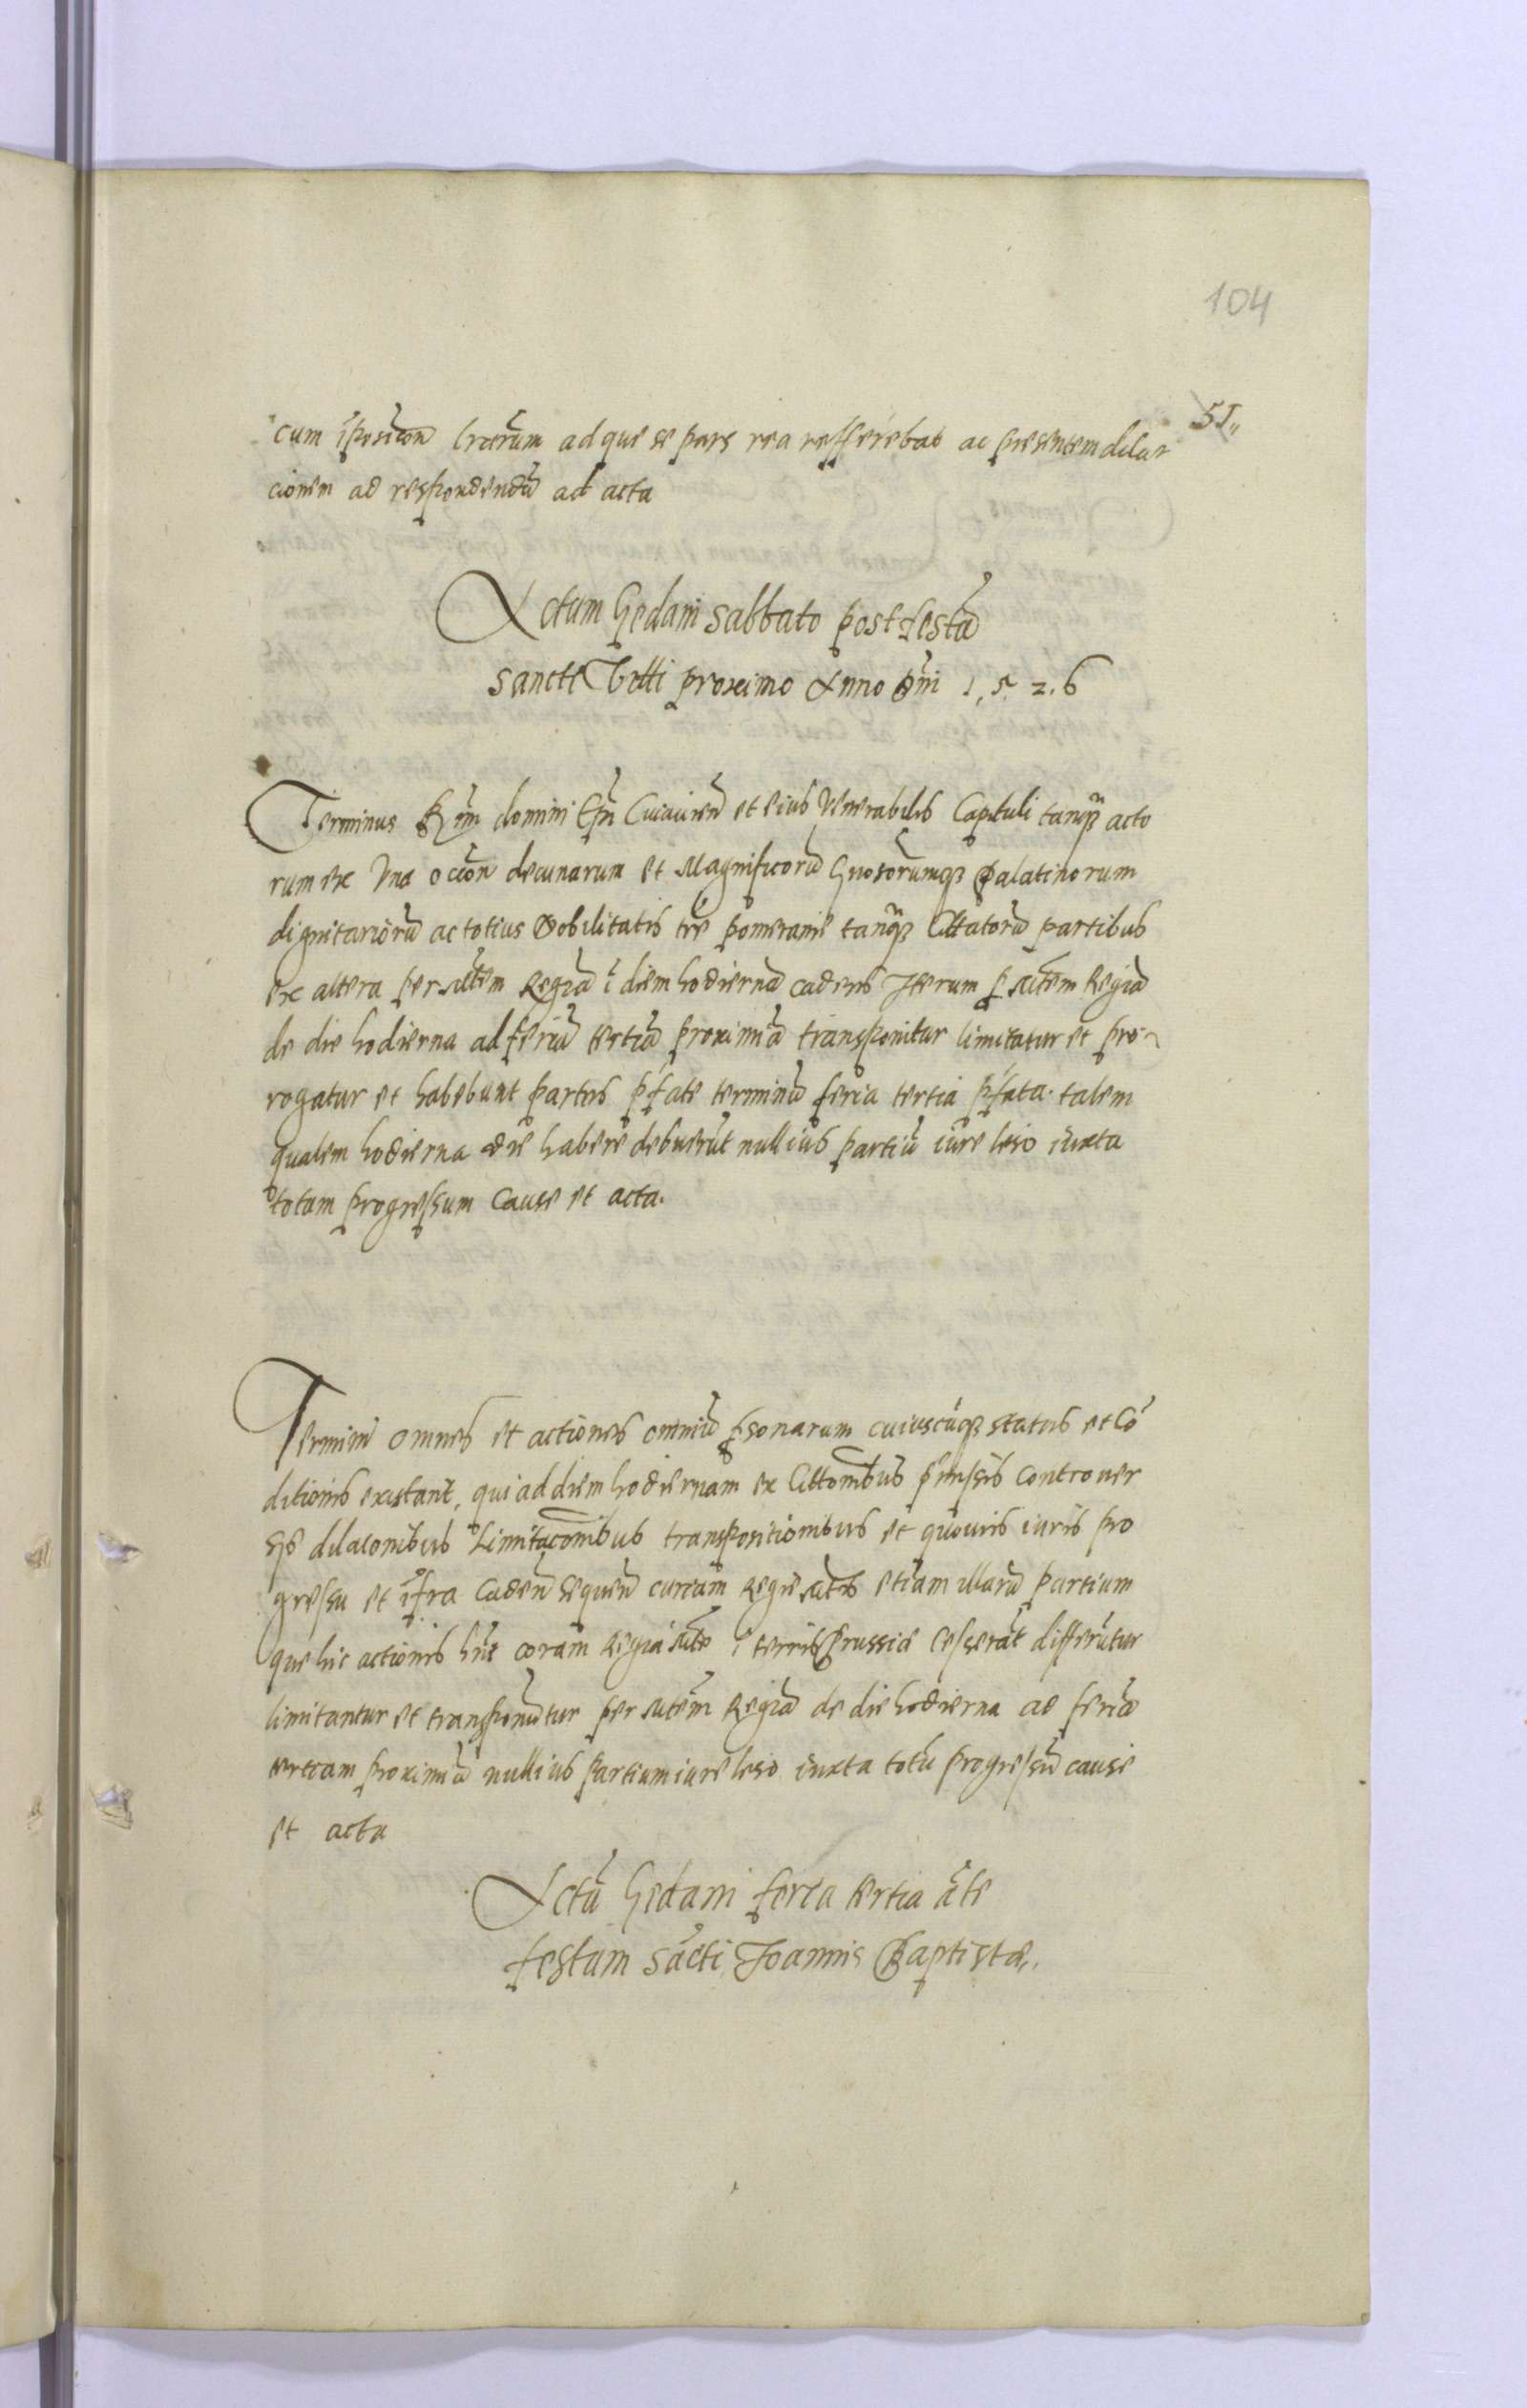 104
51
cum īposicon lrarum ad que se pars rea refferebat ac presentem dila
cionem ad respondendū ad acta
Actum Gedani sabbato post festū
sancti Viti proximo Anno Dni 1526
Terminus Rmi domini Epi Cuiavien et eius Venerabilis Capituli tanqȝ acto
rum ex Vna occon decimarum et Magnificorū Gnosorumqȝ Palatinorum
dignitariorū ac totius Nobilitatis tre Pomeranie tanqȝ Citatorū partibus
ex altera per Mtem Regiā ī diem hodiernā cadens Iterum p Mtem Regiā
de die hodierna ad feriā tertiā proximā transponitur limitatur et pro
rogatur et habebunt partes pfate terminū feria tertia pfata talem
qualem hodierna die habere debuerūt nullius partiū iure leso iuxta
totum progressum cause et acta.
Termini omnes et actiones omniū psonarum cuiuscūqȝ status et Cō
ditionis existant, qui ad diem hodiernam ex Cittonibus pmissis controuer
sijs dilaconibus Limitaconibus transpositionibus et quouis iuris pro
gressu et īfra Caden sequen curiam Regie Mtis etiam illarū partium
que hic actiones hnt coram Regia Mte ī terris Prussie Cesserāt differūtur
limitantur et transponūtur per Mtem Regiā de die hodierna ad feriā
tertiam proximā nullius partium iure leso iuxta totū progressū cause
et acta
Actū Gedani feria tertia āte
festum sācti Joannis Baptistæ.